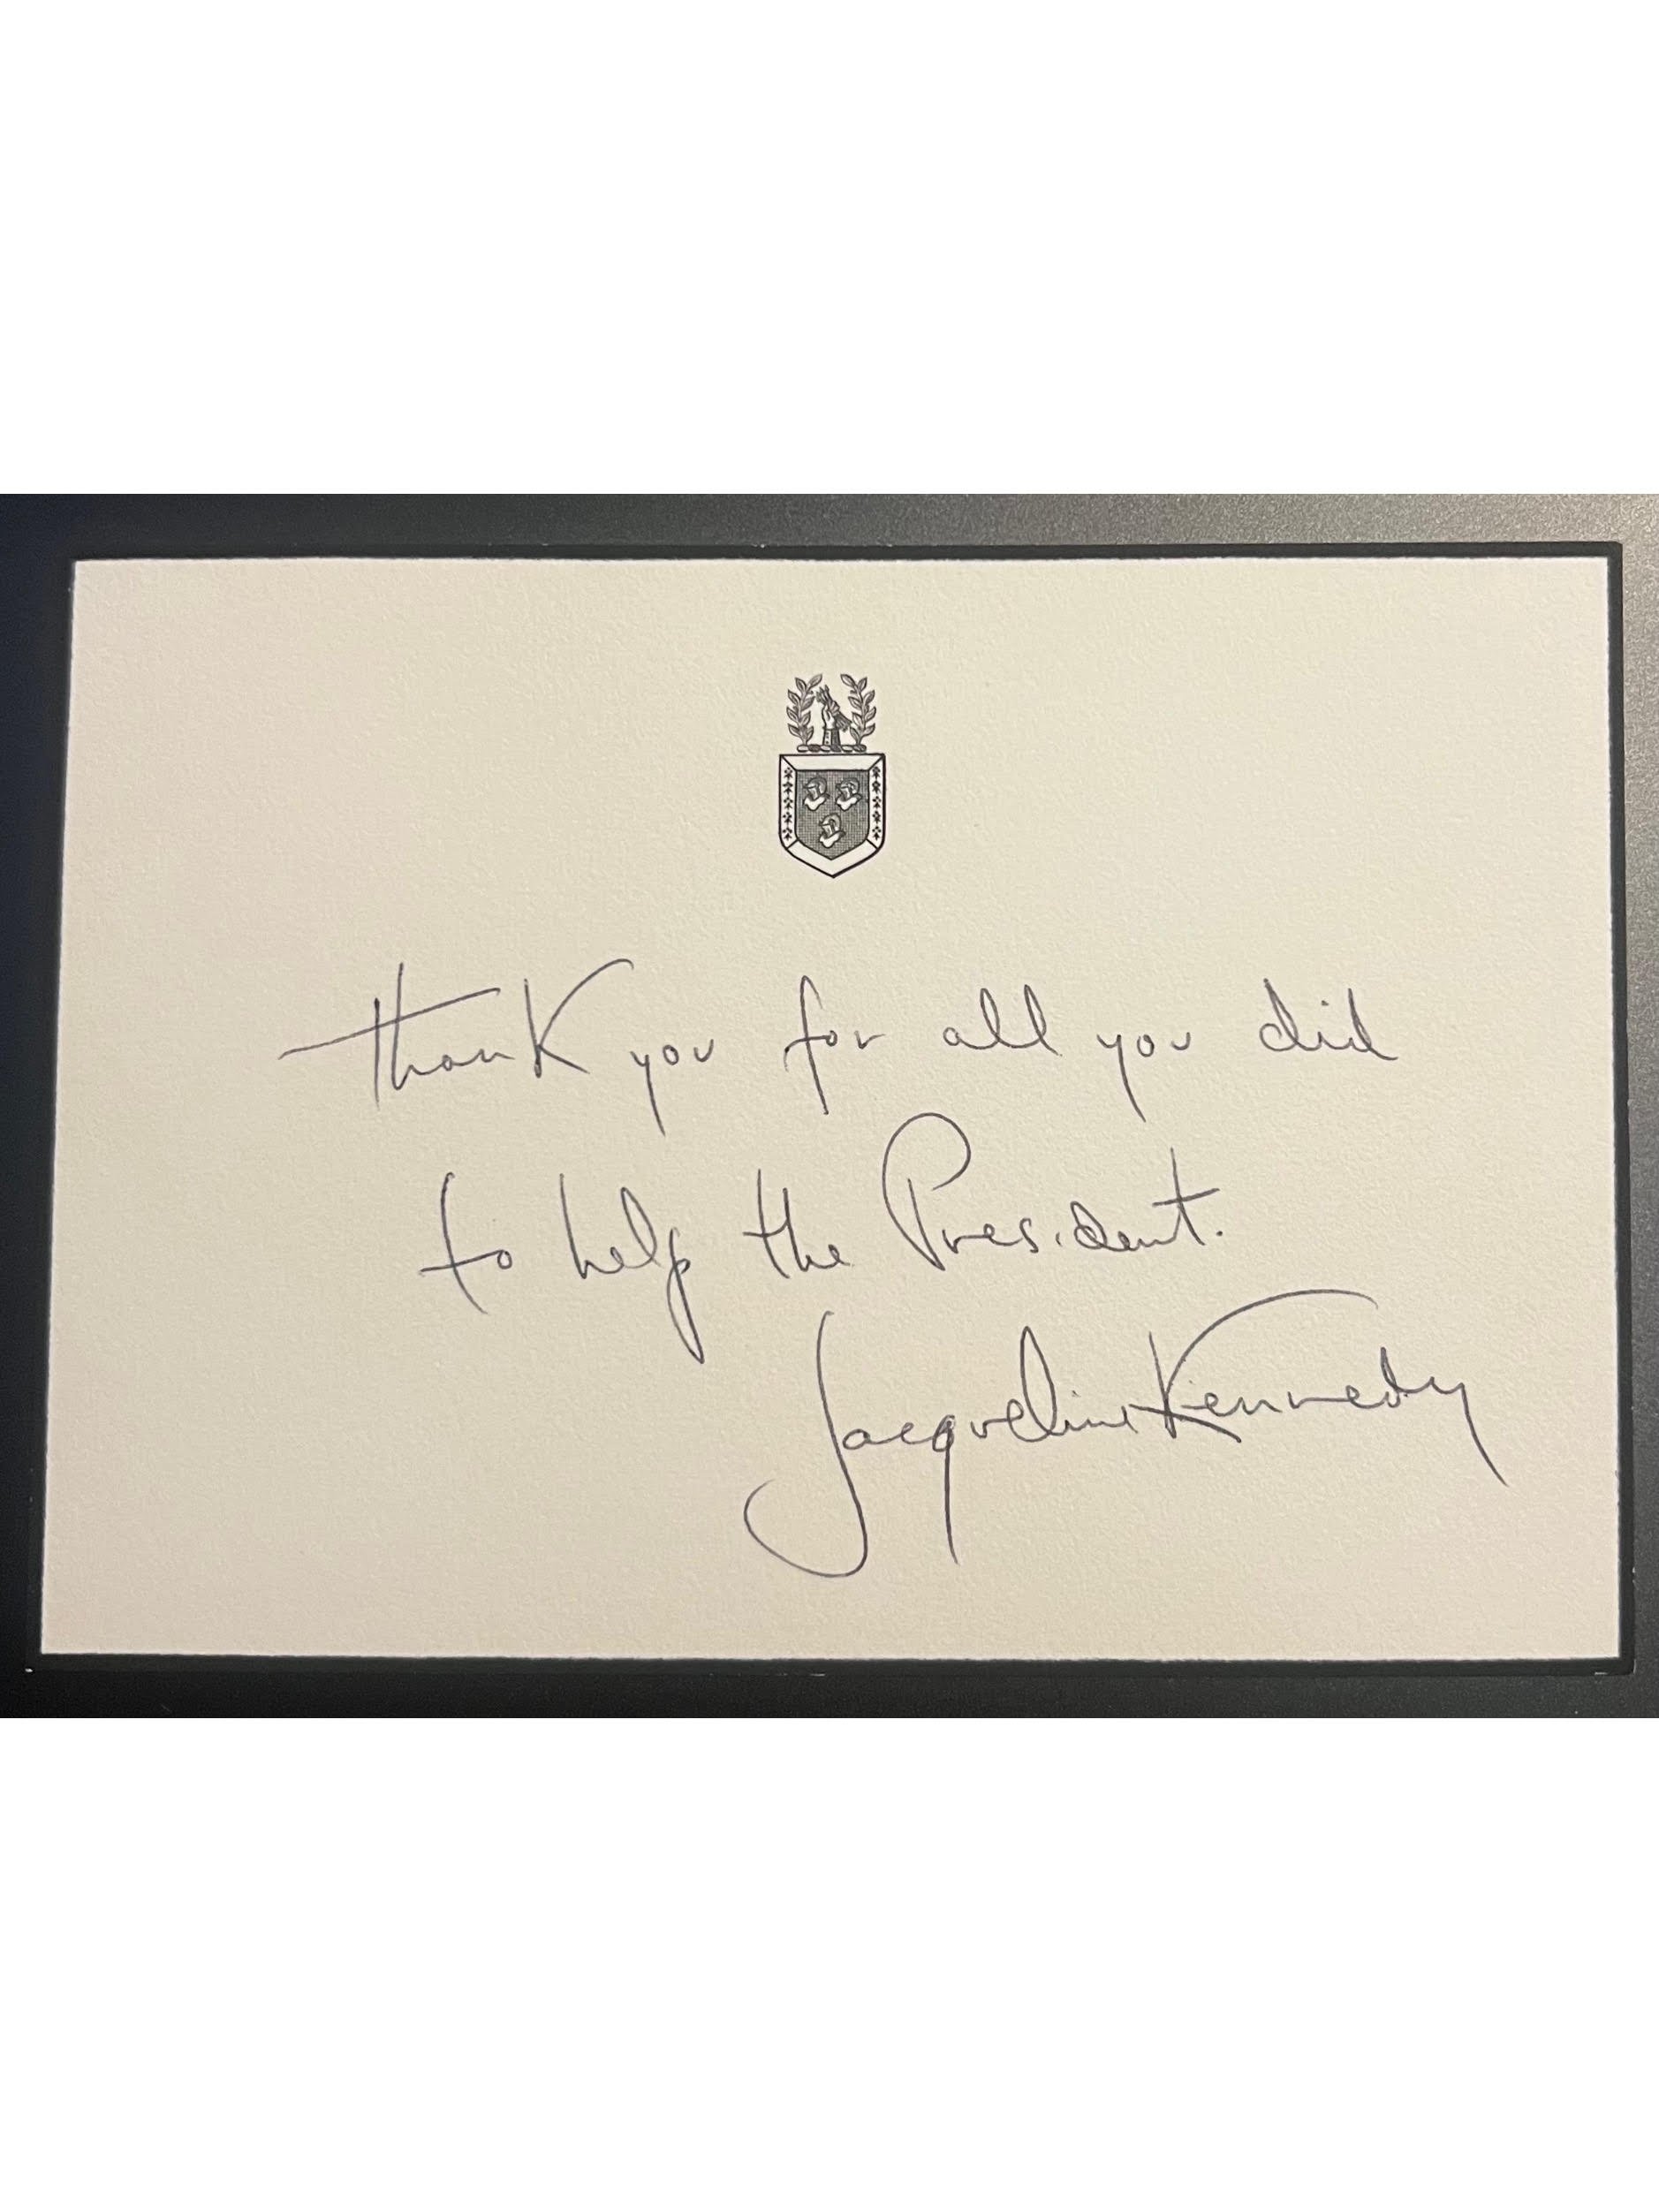 thank you for all you did
to help the President.
Jacqueline Kennedy